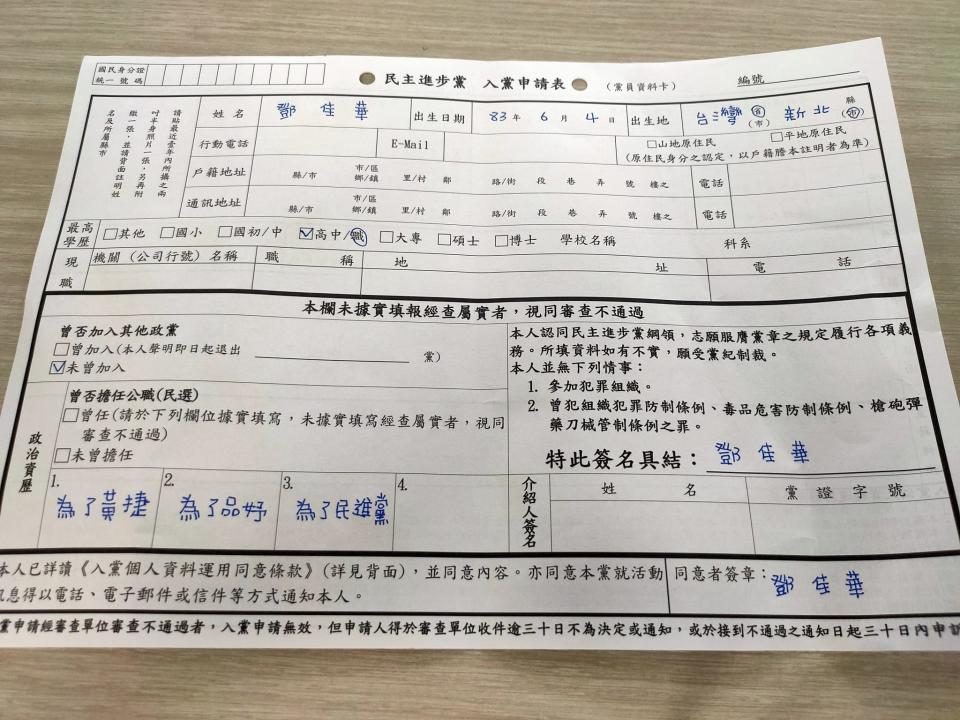 國民身分證
統一號碼
民主進步黨 入黨申請表 (黨員資料卡) 編號
請貼最近壹年內所攝之兩
吋半身照片一張,另再附
繳一張,並請背面註明姓
名及所屬縣市
姓名 鄧佳華 出生日期 83年6月4日 出生地 台灣 省(市) 新北 縣(市)
行動電話 E-Mail □山地原住民 □平地原住民
(原住民身分之認定,以戶籍謄本註明者為準)
戶籍地址 縣/市 市/區 鄉/鎮 里/村 鄰 路/街 段 巷 弄 號 樓之 電話
通訊地址 縣/市 市/區 鄉/鎮 里/村 鄰 路/街 段 巷 弄 號 樓之 電話
最高學歷 □其他 □國小 □國初/中 ☑高中/職 □大專 □碩士 □博士 學校名稱 科系
現職 機關(公司行號)名稱 職稱 地址 電話
本欄未據實填報經查屬實者,視同審查不通過
曾否加入其他政黨
□曾加入(本人聲明即日起退出 黨)
☑未曾加入
政治資歷
曾否擔任公職(民選)
□曾任(請於下列欄位據實填寫,未據實填寫經查屬實者,視同
審查不通過)
□未曾擔任
1. 為了黃捷
2. 為了品妤
3. 為了民進黨
4.
本人認同民主進步黨綱領,志願服膺黨章之規定履行各項義
務。所填資料如有不實,願受黨紀制裁。
本人並無下列情事:
1. 參加犯罪組織。
2. 曾犯組織犯罪防制條例、毒品危害防制條例、槍砲彈
藥刀械管制條例之罪。
特此簽名具結: 鄧佳華
介紹人簽名 姓名 黨證字號
本人已詳讀《入黨個人資料運用同意條款》(詳見背面),並同意內容。亦同意本黨就活動
訊息得以電話、電子郵件或信件等方式通知本人。
同意者簽章: 鄧佳華
黨申請經審查單位審查不通過者,入黨申請無效,但申請人得於審查單位收件逾三十日不為決定或通知,或於接到不通過之通知日起三十日內申訴